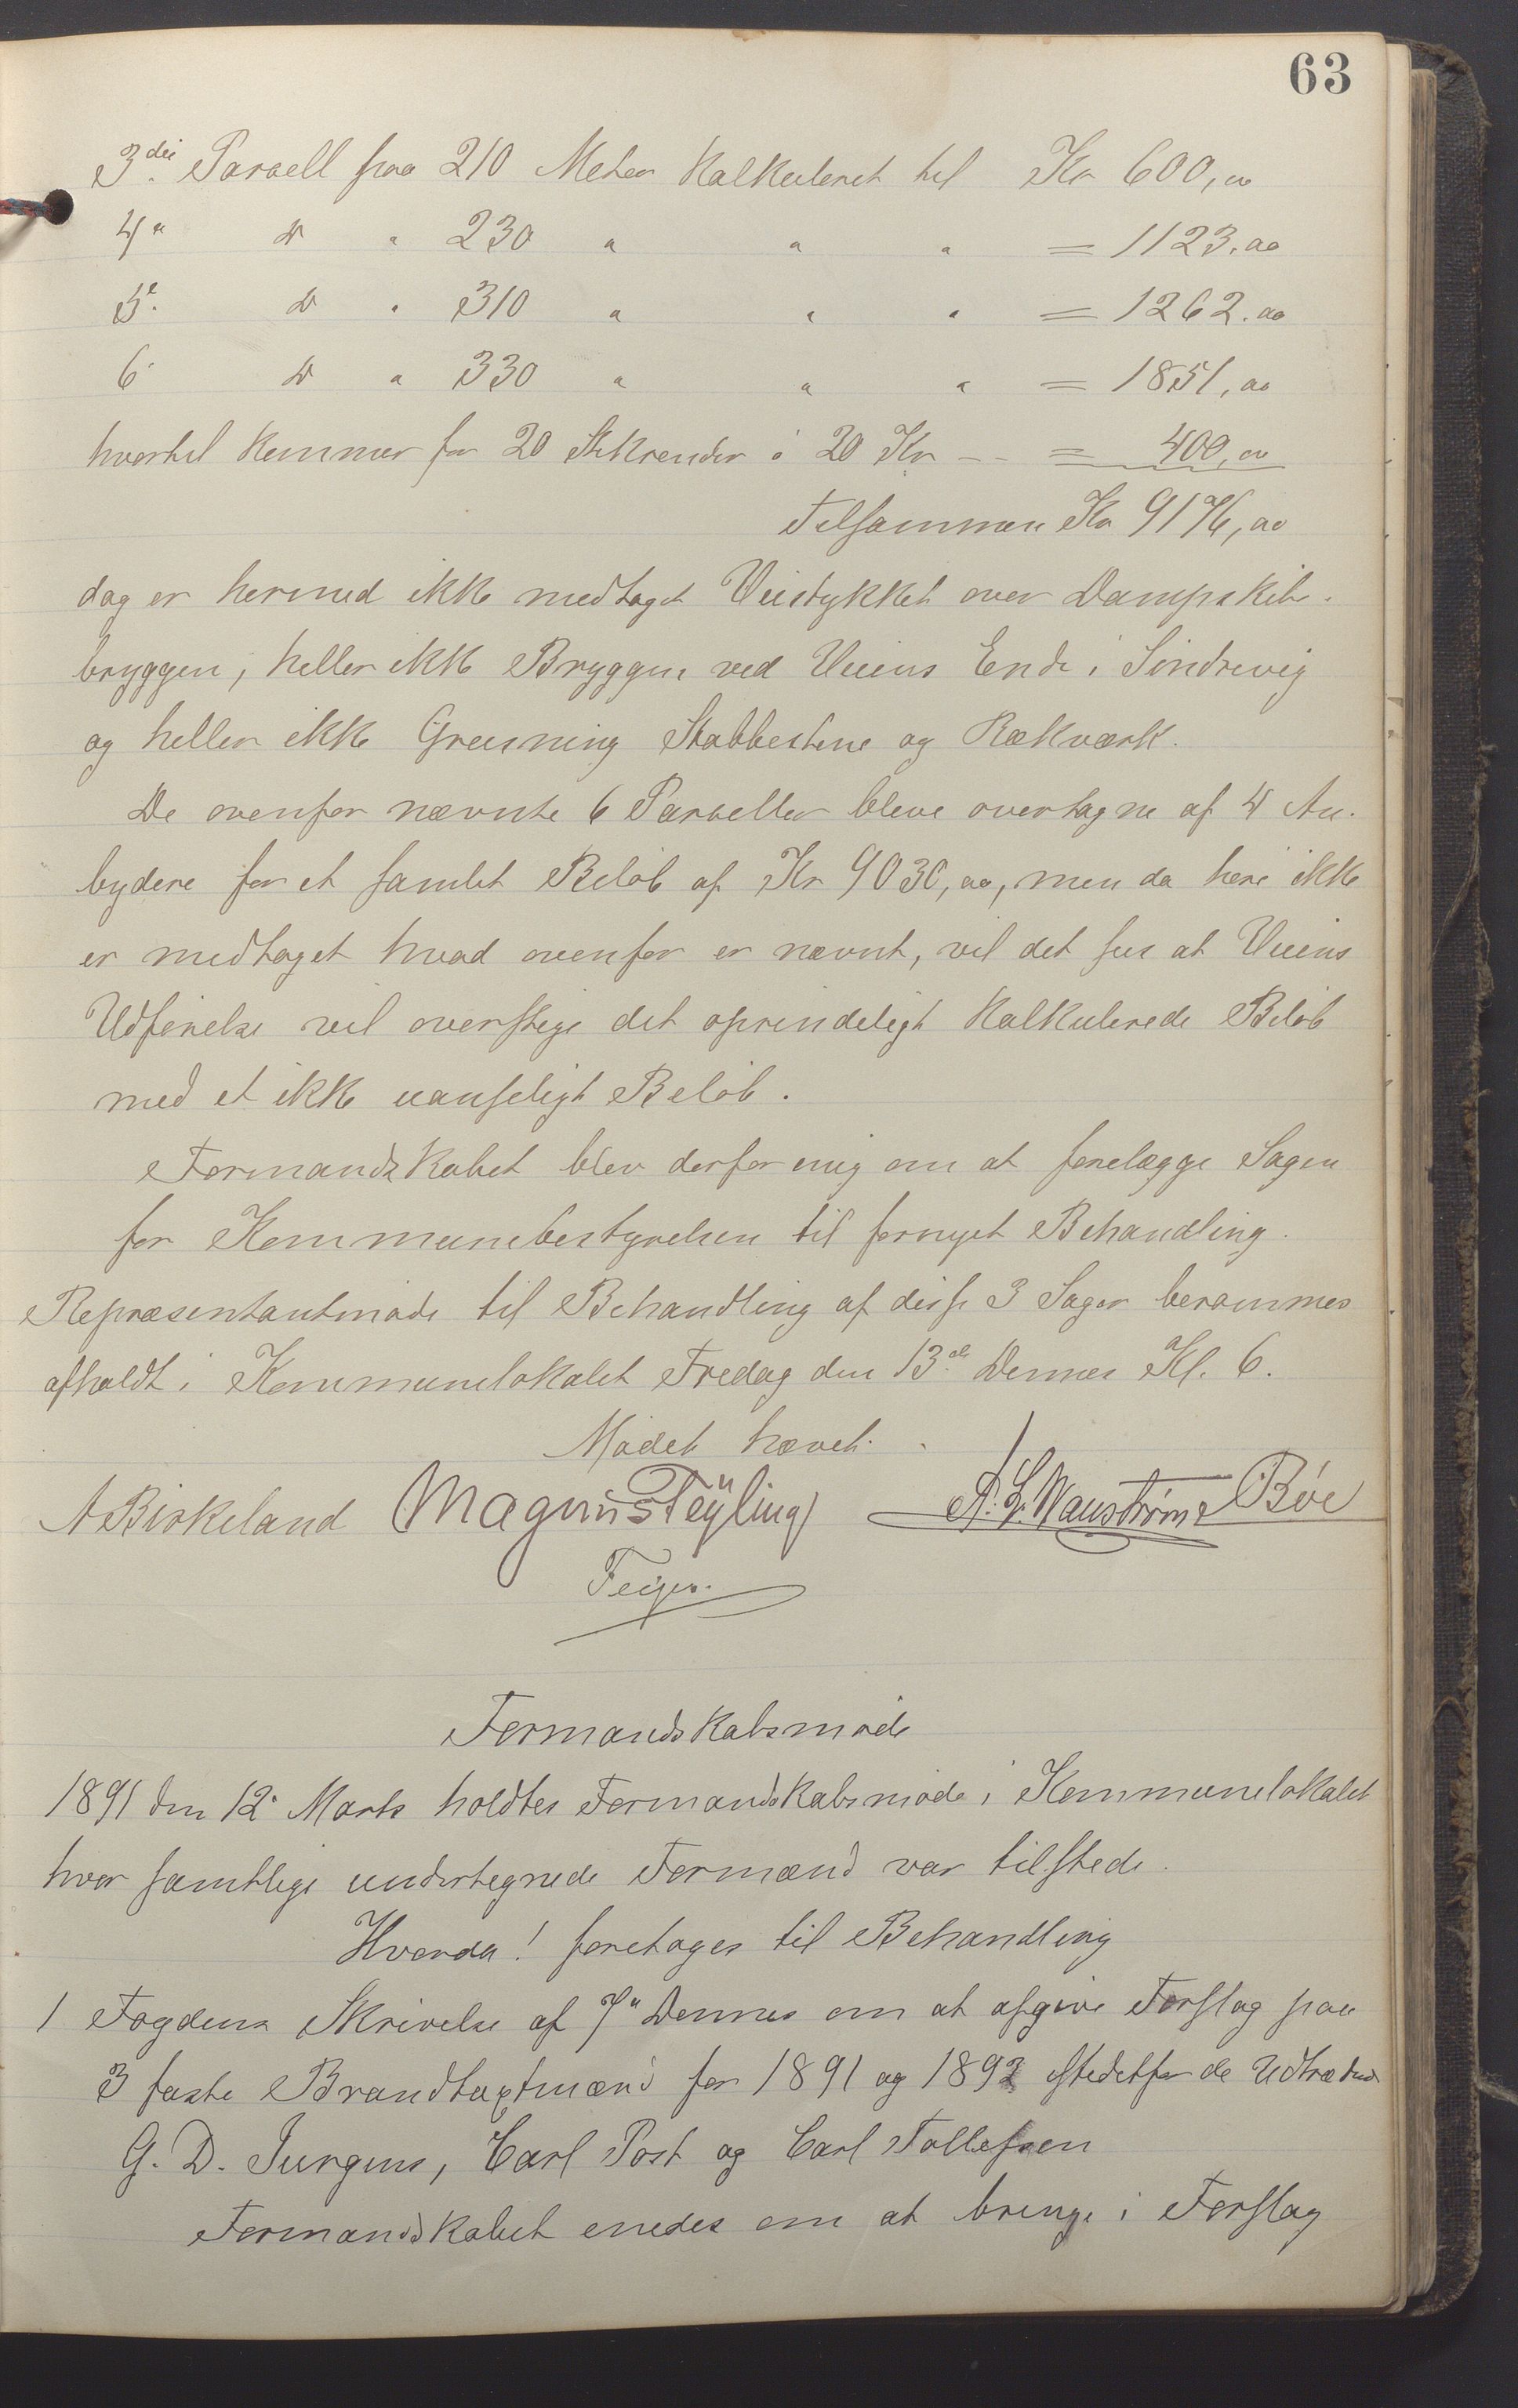 63
3die Parcell paa 210 Meter Kalkuleret til Kr 600,00
4" D " 230 " " " = 1123.00
5e. D " 310 " " " = 1262.00
6 D " 330 " " " = 1851,00
hvortil kommer for 20 Stikrender á 20 Kr -- = 400,00
Tilsammen Kr 9176,00
dog er hermed ikke medtaget Veistykket over Dampskibs-
bryggen, heller ikke Bryggen ved Veiens Ende i Sindrevig
og heller ikke Grusning Stabbestene og Rækværk.
De ovenfor nævnte 6 Parceller bleve overtagne af 4 An-
bydere for et samlet Beløb af Kr 9030,00, men da heri ikke
er medtaget hvad ovenfor er nævnt, vil det sees at Veiens
Udførelse vil overstige det oprindeligt Kalkulerede Beløb
med et ikke uanseligt Beløb.
Formandskabet blev derfor enig om at forelægge Sagen
for Kommunebestyrelsen til fornyet Behandling.
Repræsentantmøde til Behandling af disse 3 Sager berammes
afholdt i Kommunelokalet Fredag den 13de Dennes Kl. 6.
Mødet hævet.
A Birkeland Magnus Teÿling A. L. Waustrøm Bøe
Feyer.
Formandskabsmøde
1891 den 12" Marts holdtes Formandskabsmøde i Kommunelokalet
hvor samtlige undertegnede Formænd var tilstede.
Hvorda! foretoges til Behandling
1 Fogdens Skrivelse af 7" Dennes om at afgive Forslag paa
3 faste Brandtaxtmænd for 1891 og 1892 istedetfor de Udtrædende
G. D. Jurgens, Carl Post og Carl Tollefsen
Formandskabet enedes om at bringe i Forslag